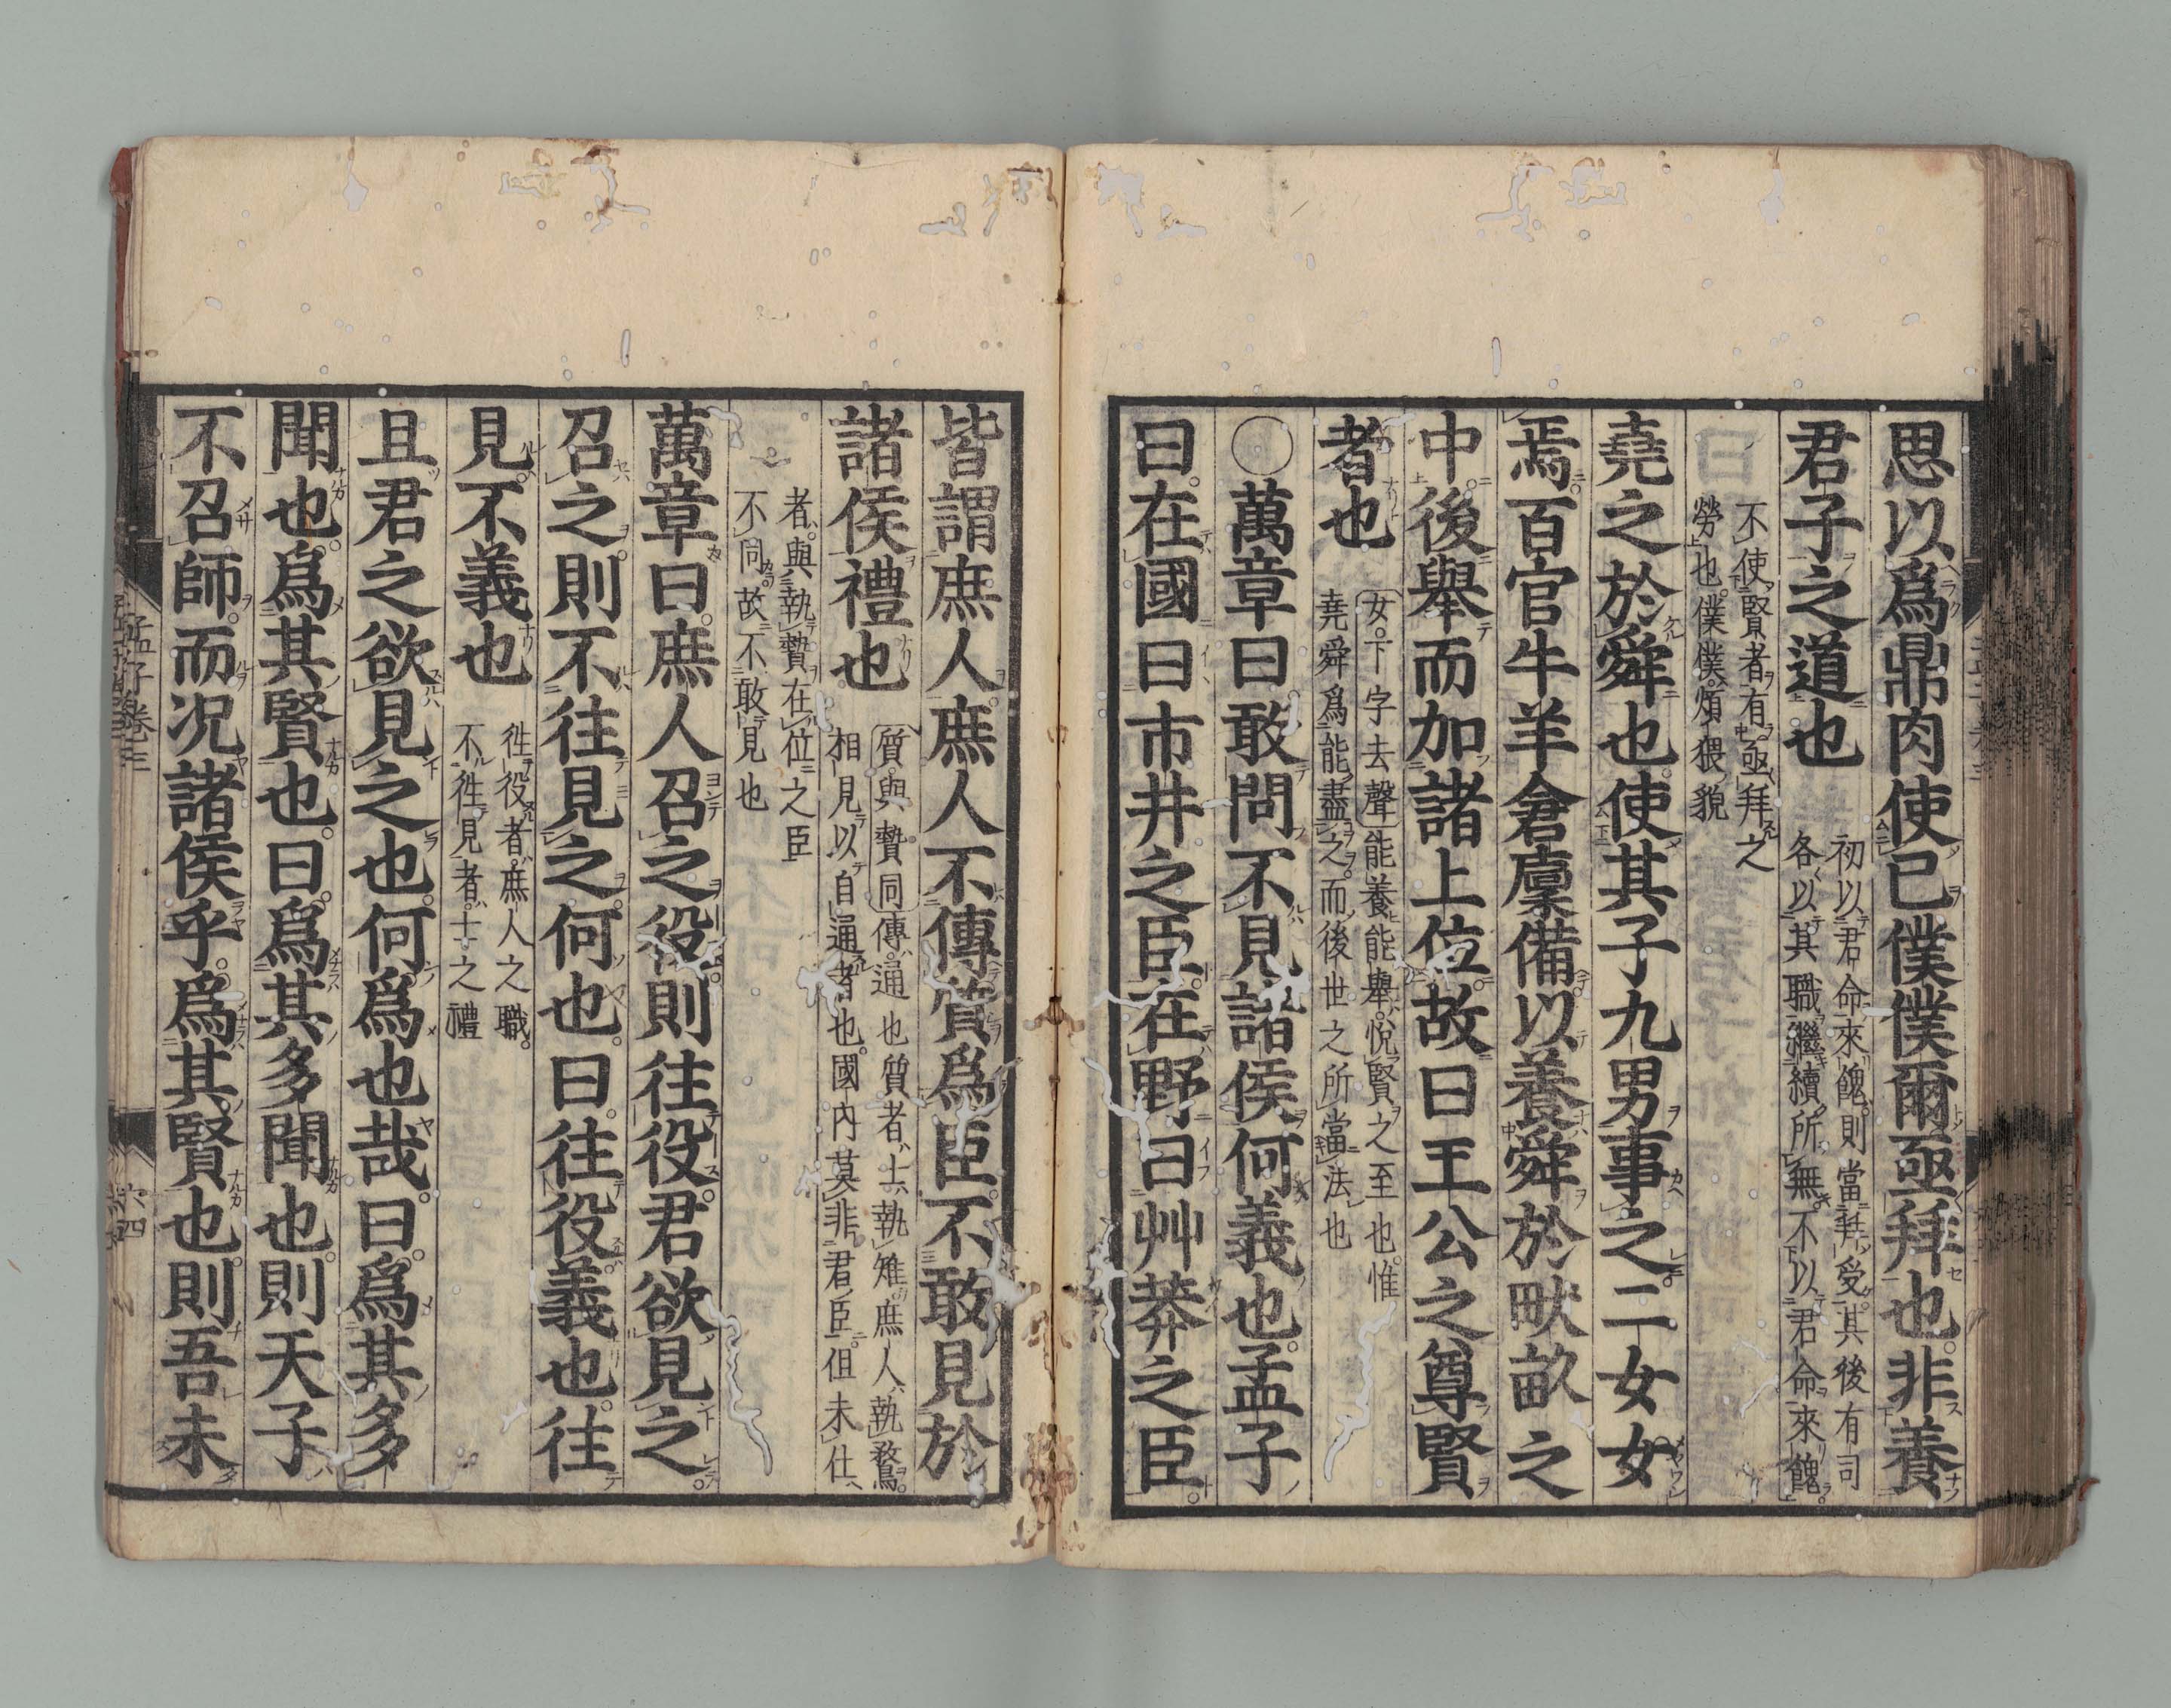 思以爲鼎肉使己僕僕爾亟拜也非養
君子之道也
初以君命來餽則當拜受其後有司
各以其職繼續所無不以君命來餽
不使賢者有亟拜之
勞也僕僕煩猥貌
堯之於舜也使其子九男事之二女女
焉百官牛羊倉廩備以養舜於畎畝之
中後舉而加諸上位故曰王公之尊賢
者也
女下字去聲能養能舉悅賢之至也惟
堯舜爲能盡之而後世之所當法也
○萬章曰敢問不見諸侯何義也孟子
曰在國曰市井之臣在野曰艸莽之臣
皆謂庶人庶人不傳質爲臣不敢見於
諸侯禮也
質與贄同傳通也質者士執雉庶人執鶩
相見以自通者也國內莫非君臣但未仕
者與執贄在位之臣
不同故不敢見也
萬章曰庶人召之役則往役君欲見之
召之則不往見之何也曰往役義也往
見不義也
徃役者庶人之職
不徃見者士之禮
且君之欲見之也何爲也哉曰爲其多
聞也爲其賢也曰爲其多聞也則天子
不召師而况諸侯乎爲其賢也則吾未
孟子卷三
六四